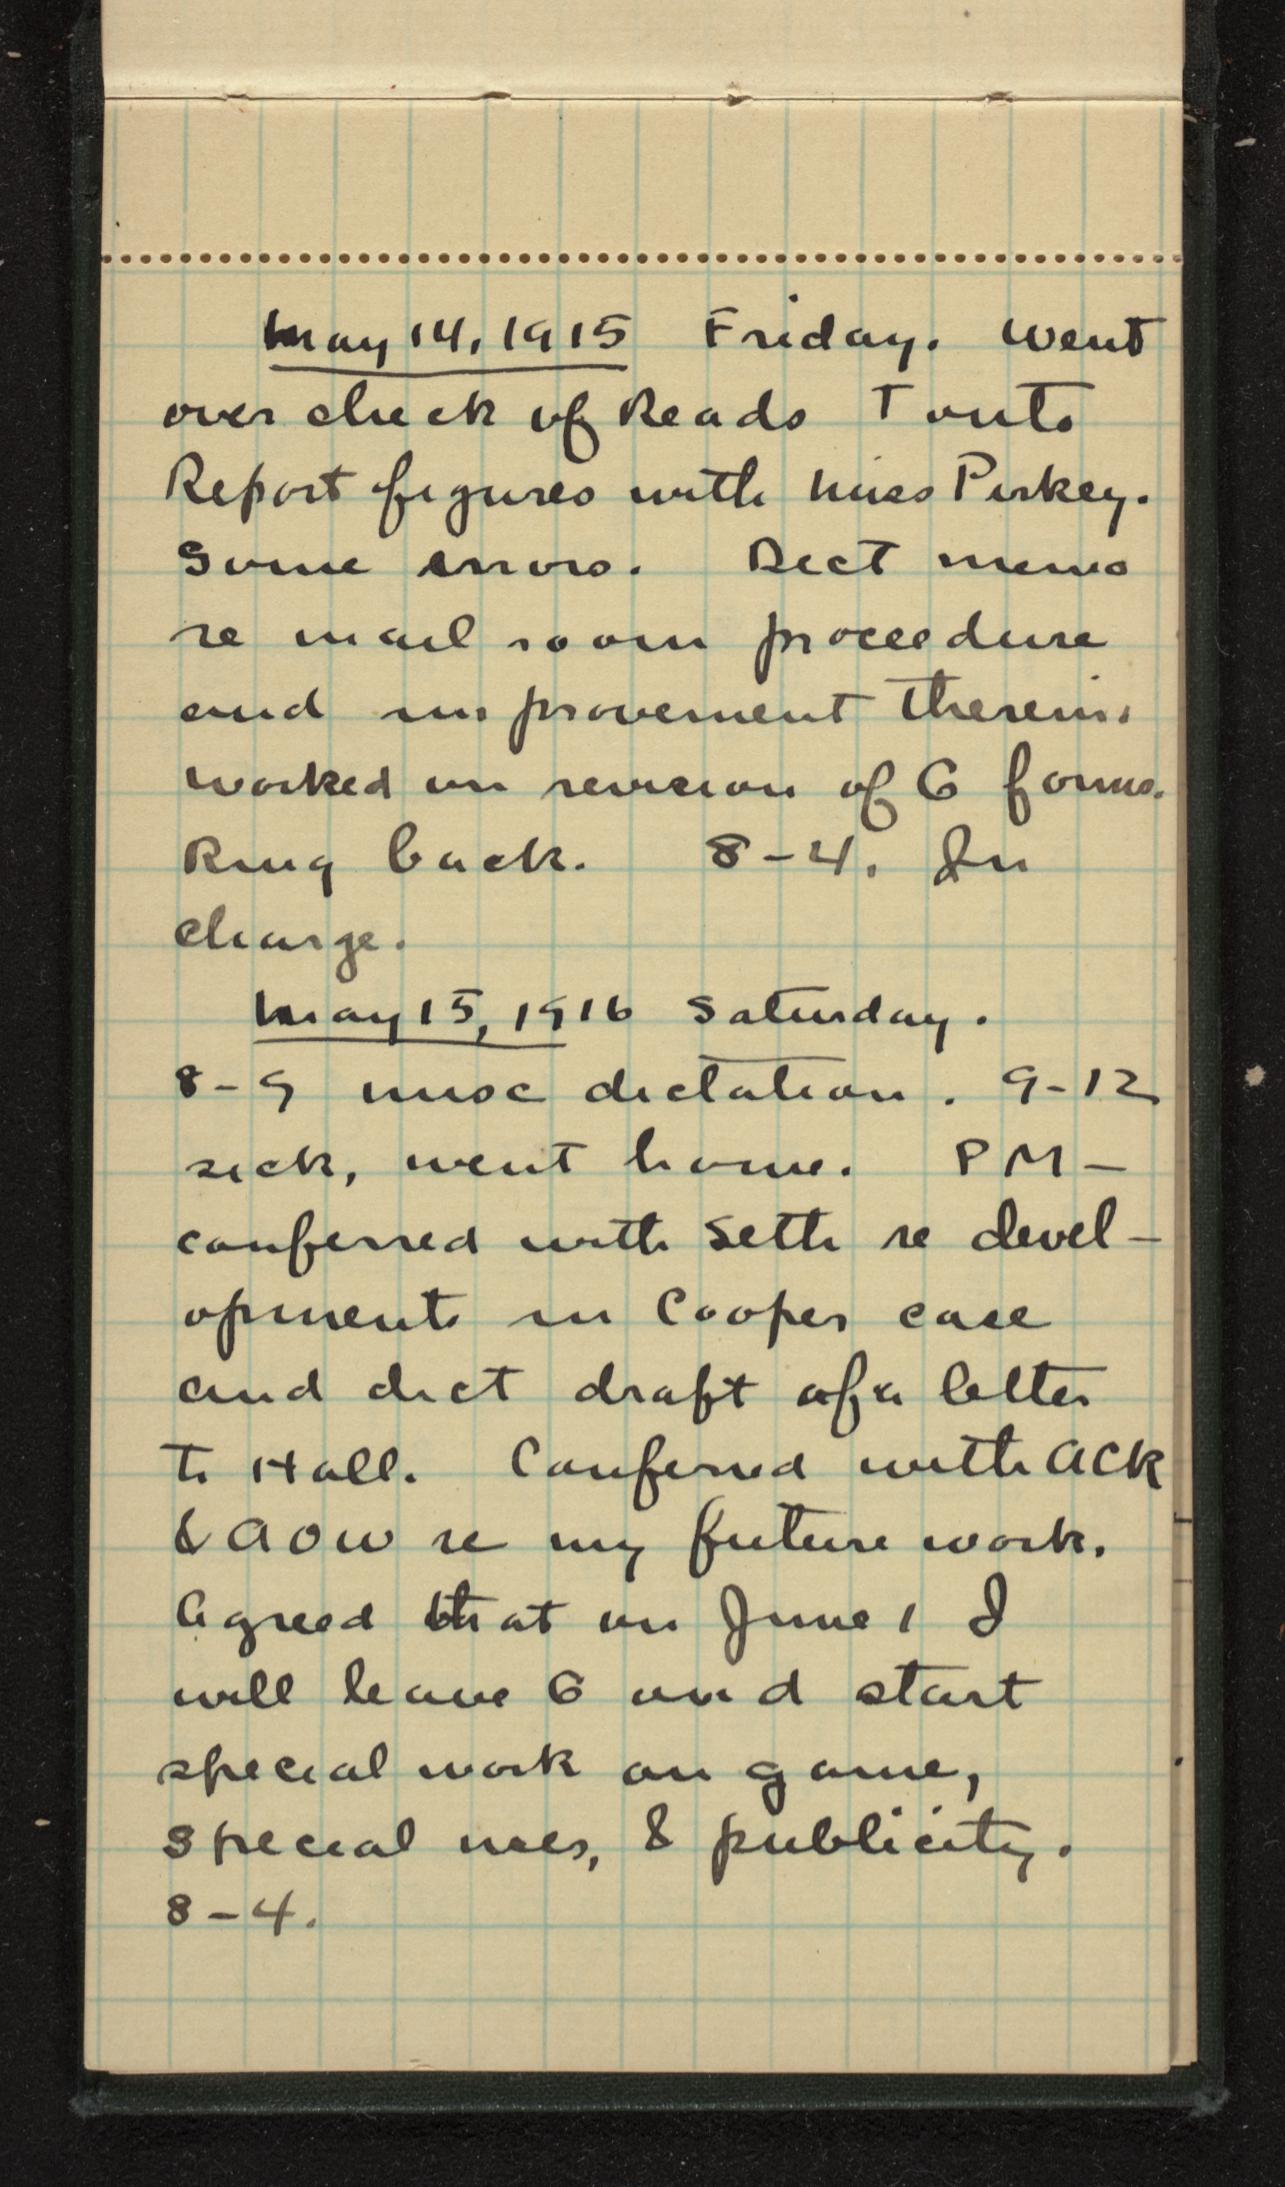 May 14, 1915 Friday. Went
over check of Reads Tonto
Report figures with Miss Perkey.
Some errors. Dict memo
re mail room proceedure
and improvement therein.
worked on revision of G forms.
Ring back. 8-4. In
charge.
May 15, 1916 Saturday.
8-9 misc dictation. 9-12
sick, went home. PM-
conferred with Seth re devel-
opments in Cooper case
and dict draft of a letter
to Hall. Conferred with ACR
& AOW re my future work.
Agreed that on June 1 I
will leave G and start
special work on game,
special uses, & publicity.
8-4.